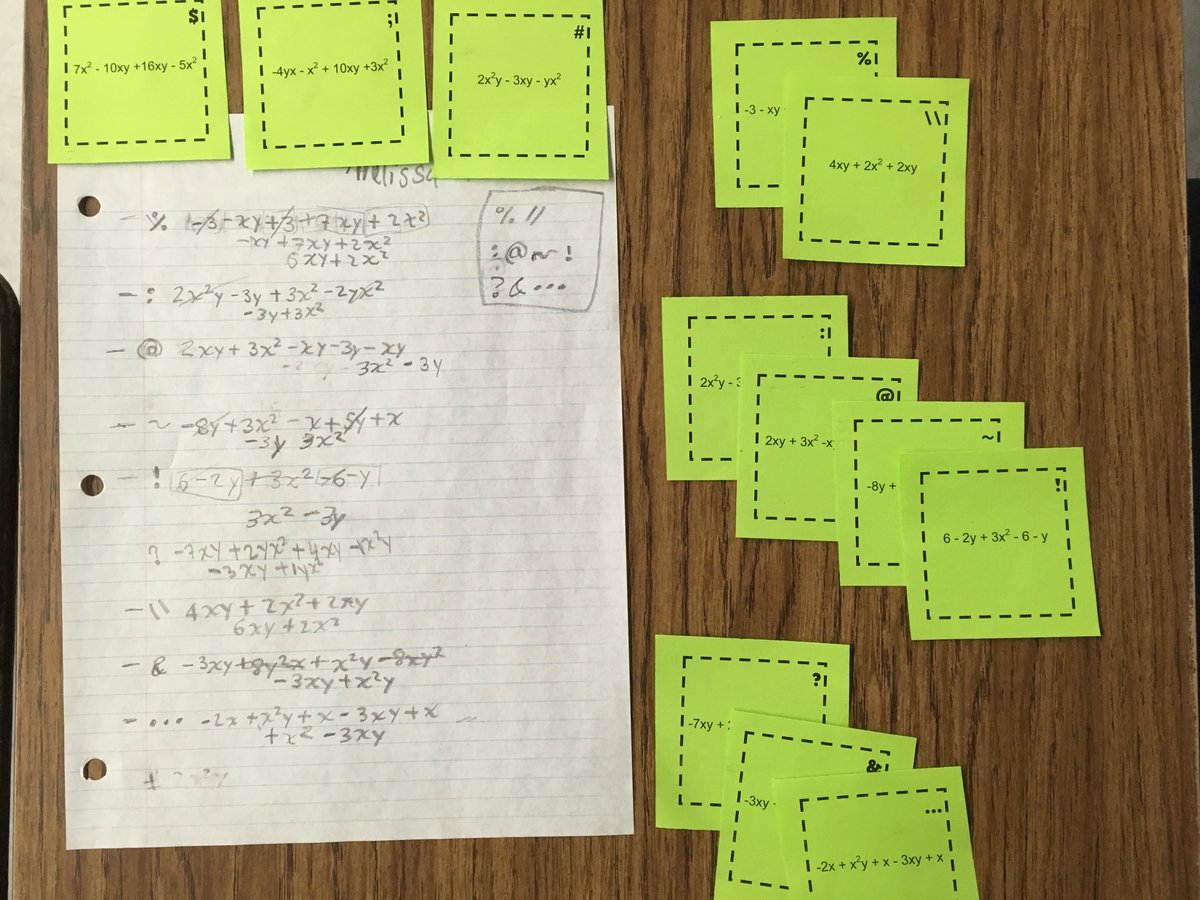 $
7x² - 10xy +16xy - 5x²
;
-4yx - x² + 10xy +3x²
#
2x²y - 3xy - yx²
%
-3 - xy
\\
4xy + 2x² + 2xy
Melissa
% \\
: @ ~ !
? & ...
- % -3 - xy + 3 + 7xy + 2x²
-xy + 7xy + 2x²
6xy + 2x²
- : 2x²y - 3y + 3x² - 2yx²
-3y + 3x²
- @ 2xy + 3x² - xy - 3y - xy
3x² - 3y
- ~ -8y + 3x² - x + 5y + x
-3y 3x²
- ! 6 - 2y + 3x² - 6 - y
3x² - 3y
? -7xy + 2yx² + 4xy - 1x²y
-3xy + 1yx²
- \\ 4xy + 2x² + 2xy
6xy + 2x²
- & -3xy + 8y²x + x²y - 8xy²
-3xy + x²y
- ... -2x + x²y + x - 3xy + x
+x2 - 3xy
:
2x²y - 3
@
2xy + 3x² -x
~
-8y +
!
6 - 2y + 3x² - 6 - y
?
-7xy +
&
-3xy
...
-2x + x²y + x - 3xy + x